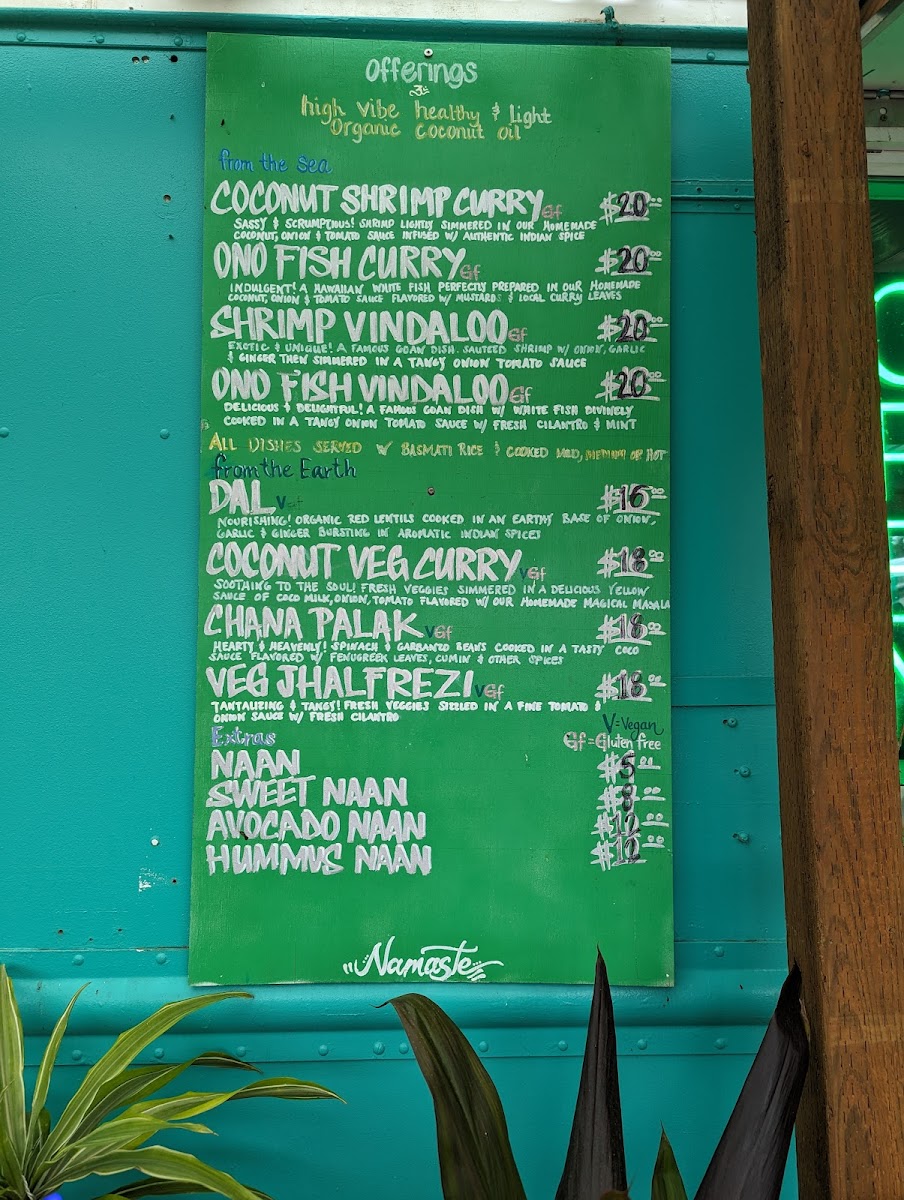 offerings
high vibe healthy & light
Organic coconut oil
from the sea
COCONUT SHRIMP CURRY Gf $20.00
SASSY & SCRUMPTIOUS! SHRIMP LIGHTLY SIMMERED IN OUR HOMEMADE
COCONUT, ONION & TOMATO SAUCE INFUSED W/ AUTHENTIC INDIAN SPICE
ONO FISH CURRY Gf $20.00
INDULGENT! A HAWAIIAN WHITE FISH PERFECTLY PREPARED IN OUR HOMEMADE
COCONUT, ONION & TOMATO SAUCE FLAVORED W/ MUSTARDS & LOCAL CURRY LEAVES
SHRIMP VINDALOO Gf $20.00
EXOTIC & UNIQUE! A FAMOUS GOAN DISH. SAUTEED SHRIMP W/ ONION, GARLIC
& GINGER THEN SIMMERED IN A TANGY ONION TOMATO SAUCE
ONO FISH VINDALOO Gf $20.00
DELICIOUS & DELIGHTFUL! A FAMOUS GOAN DISH W/ WHITE FISH DIVINELY
COOKED IN A TANGY ONION TOMATO SAUCE W/ FRESH CILANTRO & MINT
ALL DISHES SERVED W/ BASMATI RICE & COOKED MILD, MEDIUM OR HOT
from the Earth
DAL V Gf $16.00
NOURISHING! ORGANIC RED LENTILS COOKED IN AN EARTHY BASE OF ONION,
GARLIC & GINGER BURSTING IN AROMATIC INDIAN SPICES
COCONUT VEG CURRY V Gf $18.00
SOOTHING TO THE SOUL! FRESH VEGGIES SIMMERED IN A DELICIOUS YELLOW
SAUCE OF COCO MILK, ONION, TOMATO FLAVORED W/ OUR HOMEMADE MAGICAL MASALA
CHANA PALAK V Gf $18.00
HEARTY & HEAVENLY! SPINACH & GARBANZO BEANS COOKED IN A TASTY COCO
SAUCE FLAVORED W/ FENUGREEK LEAVES, CUMIN & OTHER SPICES
VEG JHALFREZI V Gf $18.00
TANTALIZING & TANGY! FRESH VEGGIES SIZZLED IN A FINE TOMATO &
ONION SAUCE W/ FRESH CILANTRO
V=Vegan
Extras Gf=Gluten free
NAAN $5.00
SWEET NAAN $8.00
AVOCADO NAAN $12.00
HUMMUS NAAN $12.00
Namaste